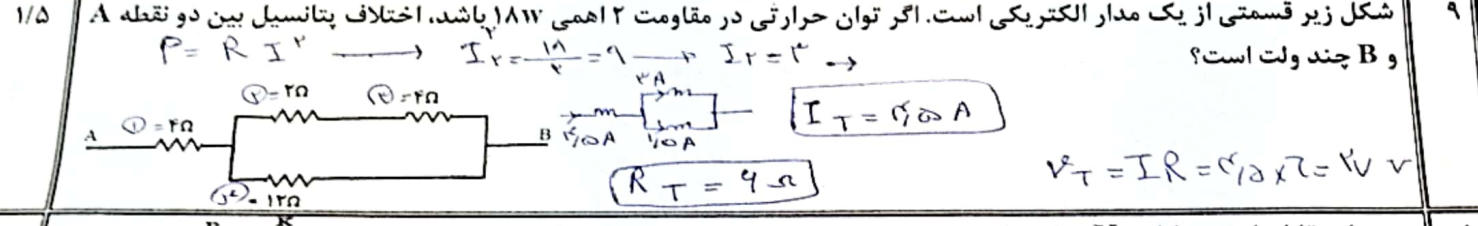 ۹ شکل زیر قسمتی از یک مدار الکتریکی است. اگر توان حرارتی در مقاومت ۲ اهمی ۱۸w باشد، اختلاف پتانسیل بین دو نقطه A ۱/۵
و B چند ولت است؟
P = R I² → I₂² = ۱۸/۲ = ۹ → I₂ = ۳ →
۲ = ۲Ω ۳ = ۴Ω ۳A
A ۱ = ۴Ω B ۴/۵A ۱/۵A I T = ۴/۵ A
R T = ۶ Ω V T = I R = ۴/۵ × ۶ = ۲۷ v
۴ = ۱۲Ω